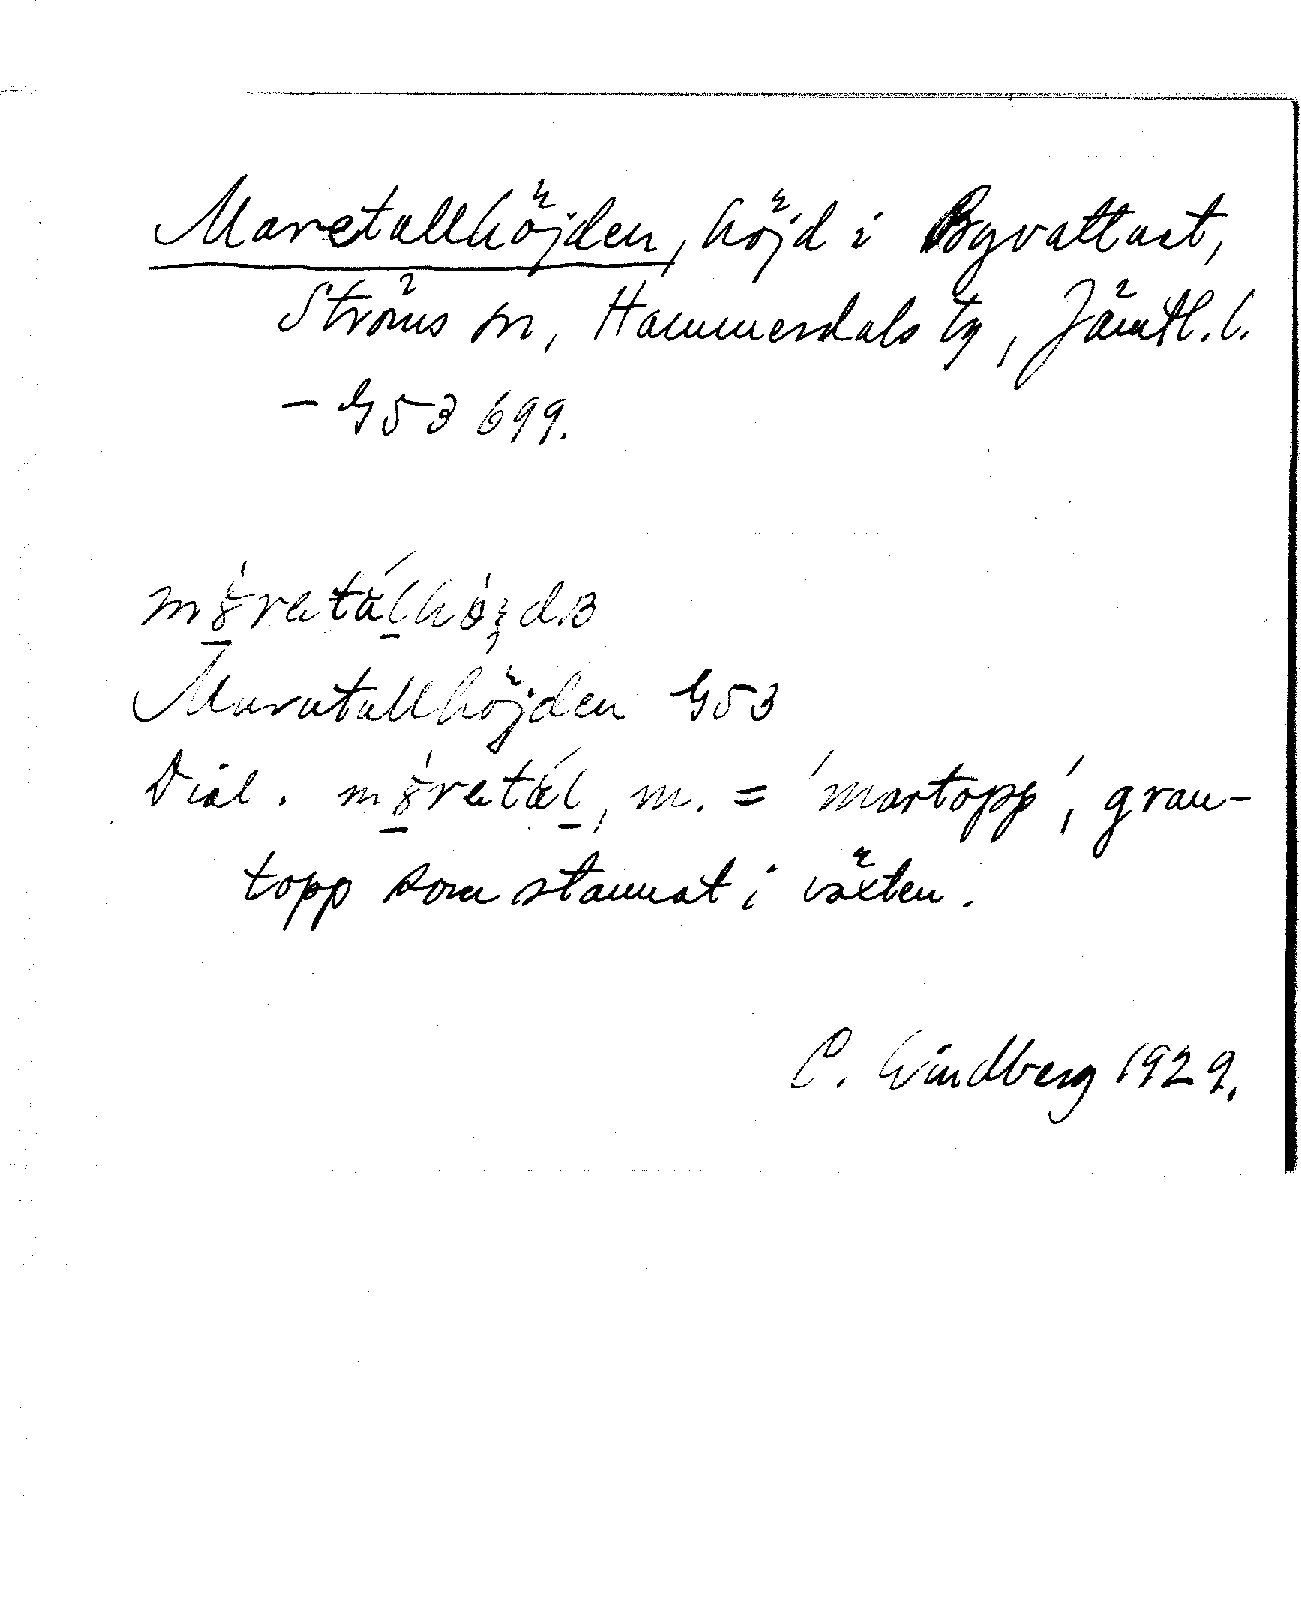 Maretallhöjden, höjd i Byvattnet,
Ströms sn, Hammerdals tg, Jämtl. l.
– G53 699.
Maratallhöjden G53
Dial. , m. = 'martopp', gran-
topp som stannat i växten.
C. Lindberg 1929.